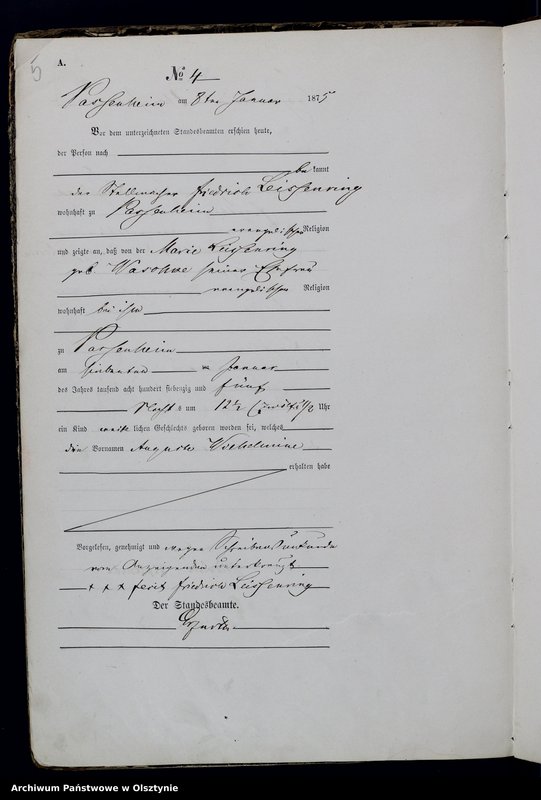 5
A.
No 4
Passenheim am 8ten Januar 1875
Vor dem unterzeichneten Standesbeamten erschien heute,
der Person nach
bekannt
der Stellmacher Friedrich Leissenring
wohnhaft zu Passenheim
evangelischer Religion
und zeigte an, daß von der Marie Leissenring
geb seiner Ehefrau
evangelischer Religion
wohnhaft bei ihm
zu Passenheim
am siebenten Januar
des Jahres tausend acht hundert siebenzig und fünf
Nachts um 12 1/2 Uhr
ein Kind weiblichen Geschlechts geboren worden sei, welches
den Vornamen Auguste Wilhelmine
erhalten habe
Vorgelesen, genehmigt und wegen Schreibensunkunde
vom Anzeigenden unterkreuzt
+ + + fecit Friedrich Leissenring
Der Standesbeamte.
Archiwum Państwowe w Olsztynie